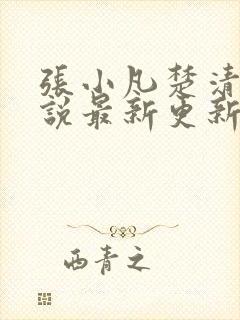 張小凡楚清
說最新更新
西青之